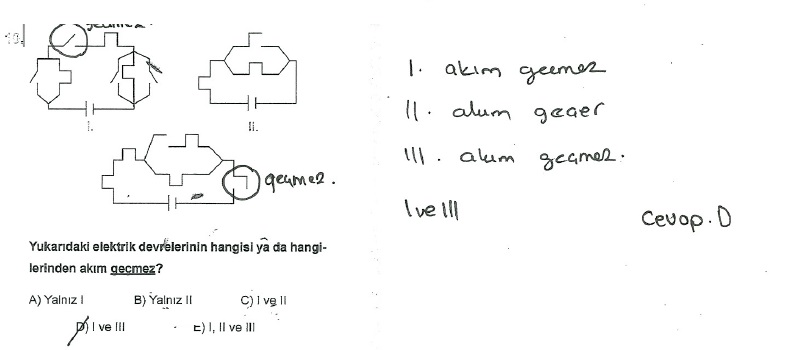 geçmez.
19.
I.
II.
geçmez.
Yukarıdaki elektrik devrelerinin hangisi ya da hangi-
lerinden akım geçmez?
A) Yalnız I
B) Yalnız II
C) I ve II
D) I ve III
E) I, II ve III
I. akım geçmez
II. akım geçer
III. akım geçmez.
I ve III
Cevap. D